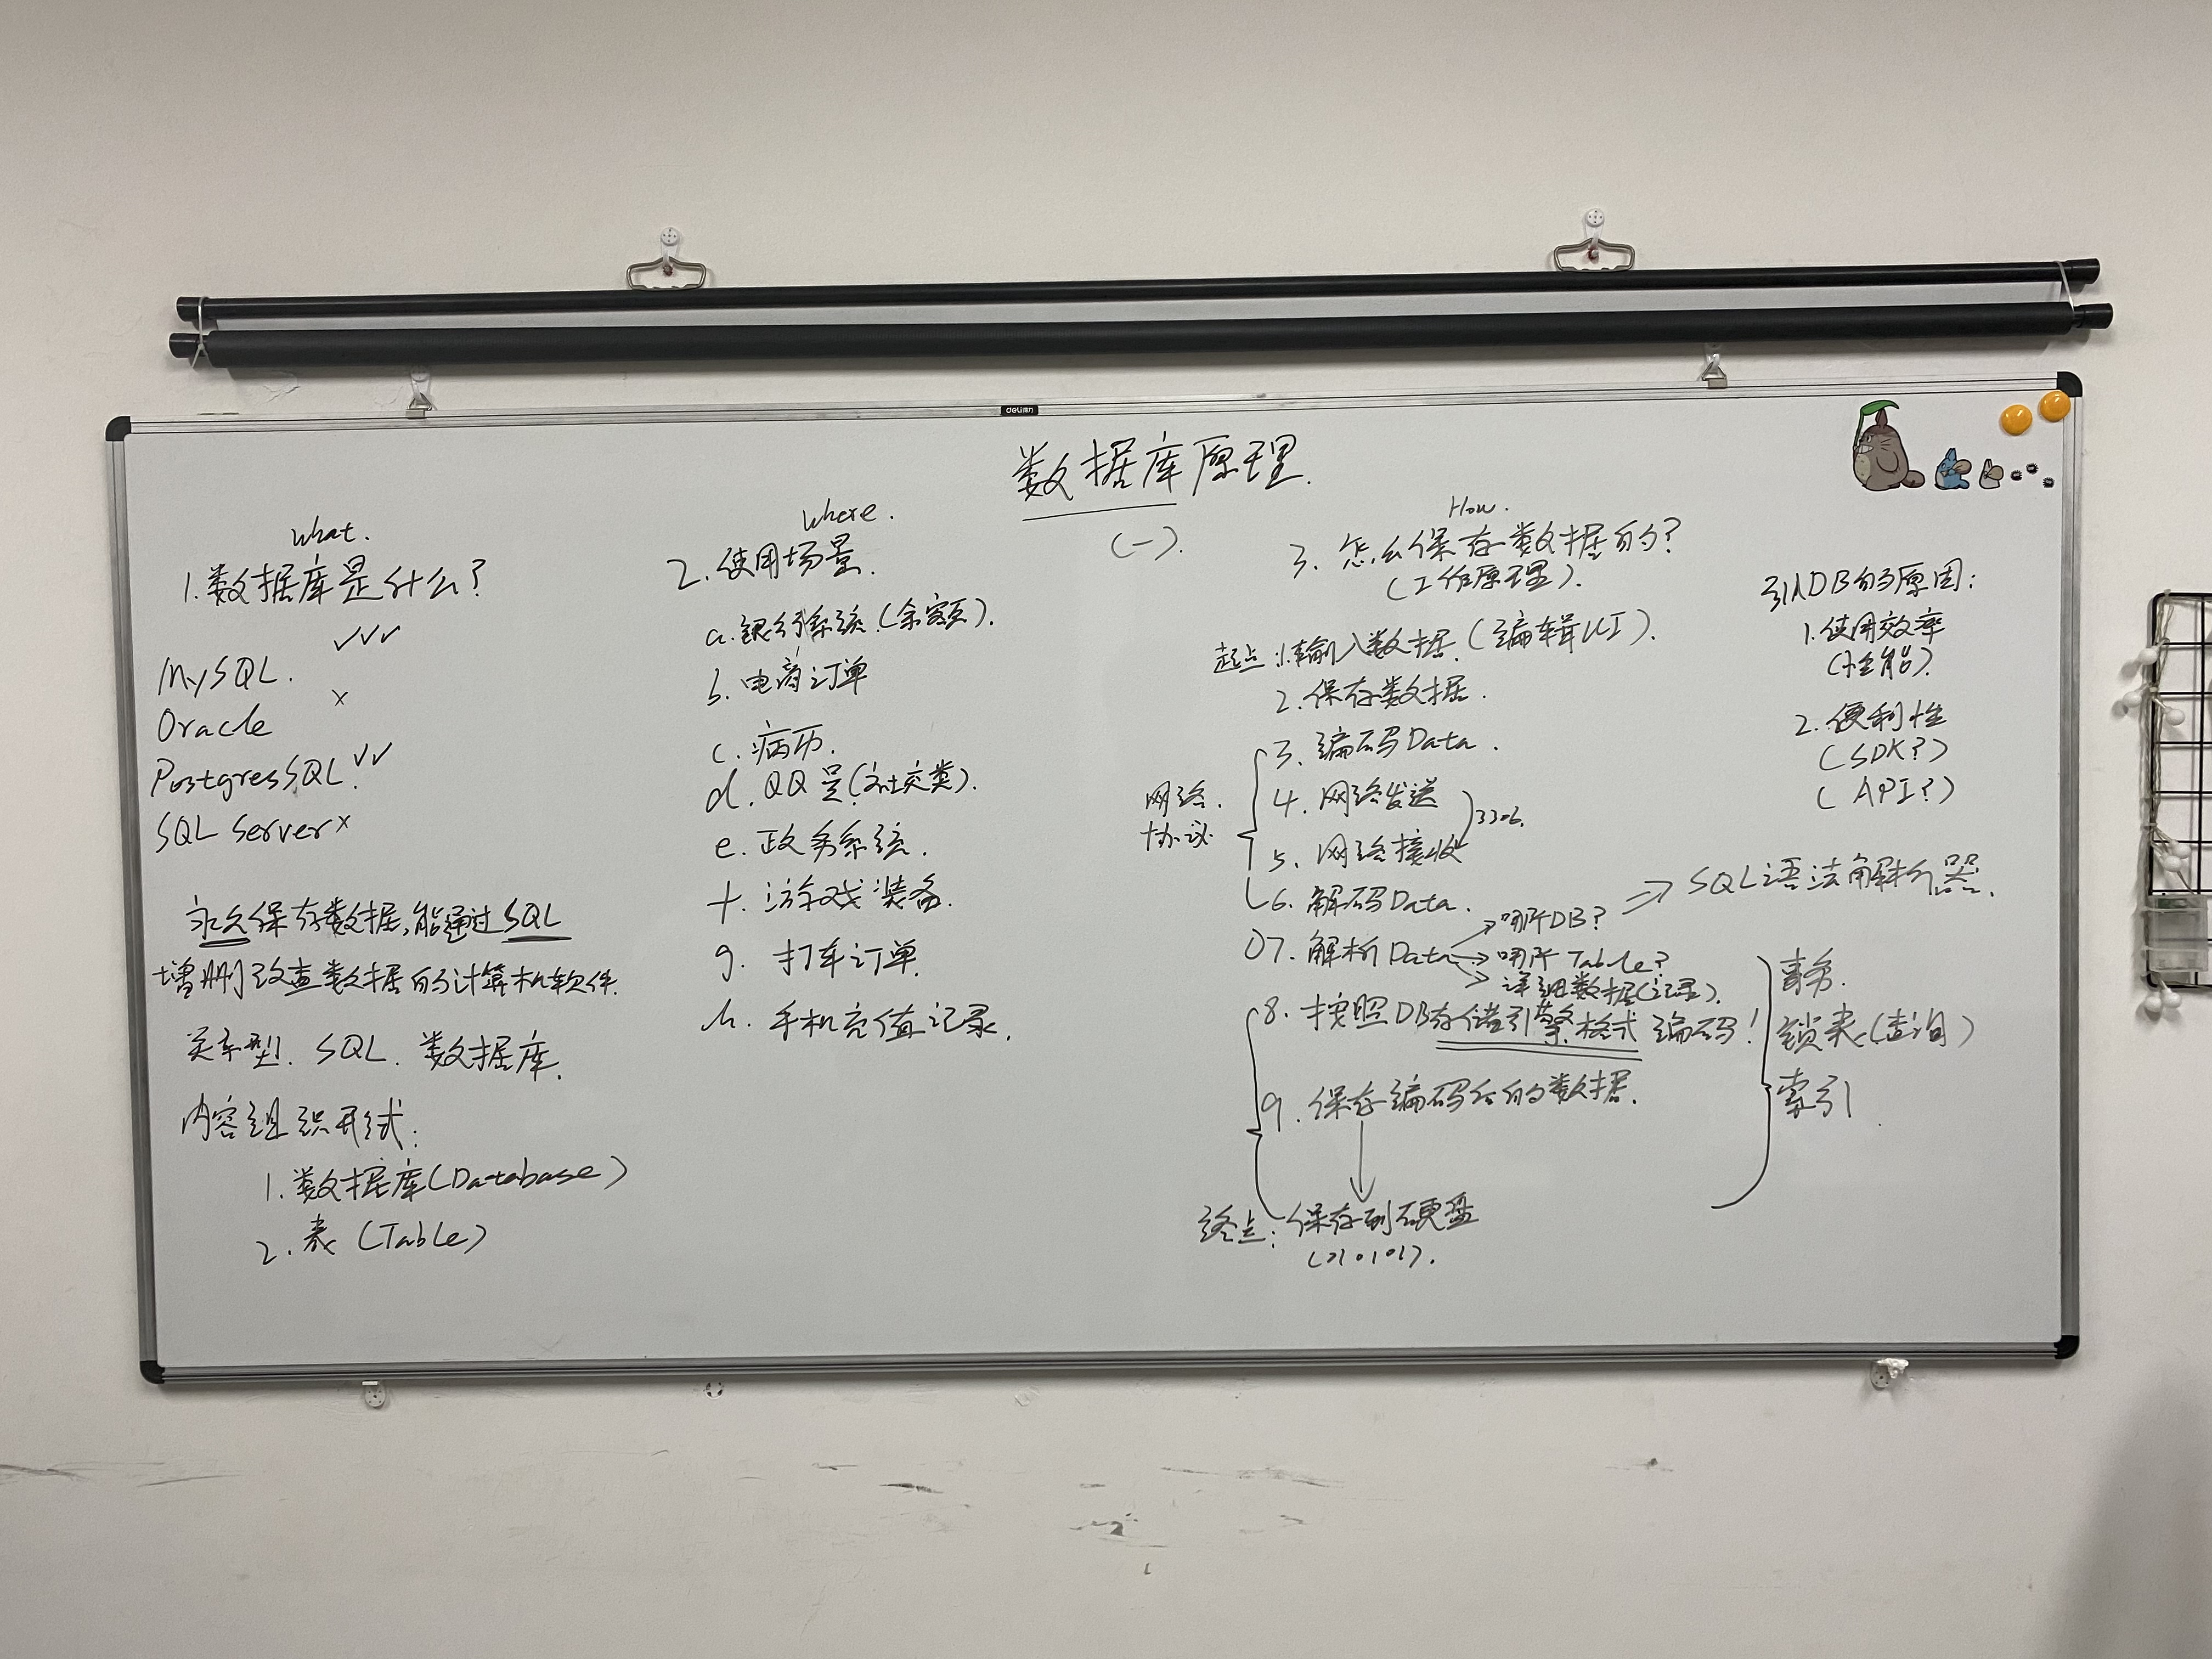 deli得力
数据库原理.
(一).
What.
1.数据库是什么?
✓✓✓
MySQL.
×
Oracle
PostgresSQL. ✓✓
SQL Server ×
永久保存数据,能通过SQL
增删改查数据的计算机软件.
关系型. SQL. 数据库.
内容组织形式:
1.数据库(Database)
2.表(Table)
Where.
2.使用场景.
a.银行系统.(余额).
b.电商订单
c.病历.
d.QQ号(社交类).
e.政务系统.
f.游戏装备.
g.打车订单.
h.手机充值记录.
How.
3.怎么保存数据的?
(工作原理).
起点:1.输入数据.(编辑UI).
2.保存数据.
网络.
协议.
3.编码Data.
4.网络发送
3306.
5.网络接收
6.解码Data.
7.解析Data
哪个DB?
哪个Table?
详细数据(记录).
=> SQL语法解析器.
8.按照DB存储引擎.格式编码!
9.保存编码后的数据.
终点:保存到硬盘
(010101).
事务.
锁表(查询)
索引.
引入DB的原因:
1.使用效率
(性能).
2.便利性
(SDK?)
(API?)